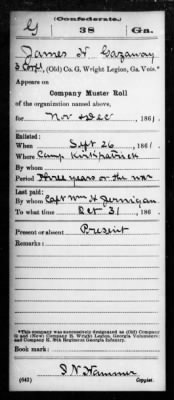 (Confederate.)
G 38 Ga.
James H Gazaway
3 Corpl, (Old) Co. G, Wright Legion, Ga. Vols.*
Appears on
Company Muster Roll
of the organization named above,
for Nov & Dec, 1861.
Enlisted:
When Sept 26, 1861.
Where Camp Kirkpatrick
By whom
Period Three years or the war
Last paid:
By whom Capt Wm H Jernigan
To what time Oct 31, 186 .
Present or absent Present
Remarks:
*This company was successively designated as (Old) Company
G and (New) Company K, Wright Legion, Georgia Volunteers
and Company K, 38th Regiment Georgia Infantry.
Book mark:
(642) Copyist.